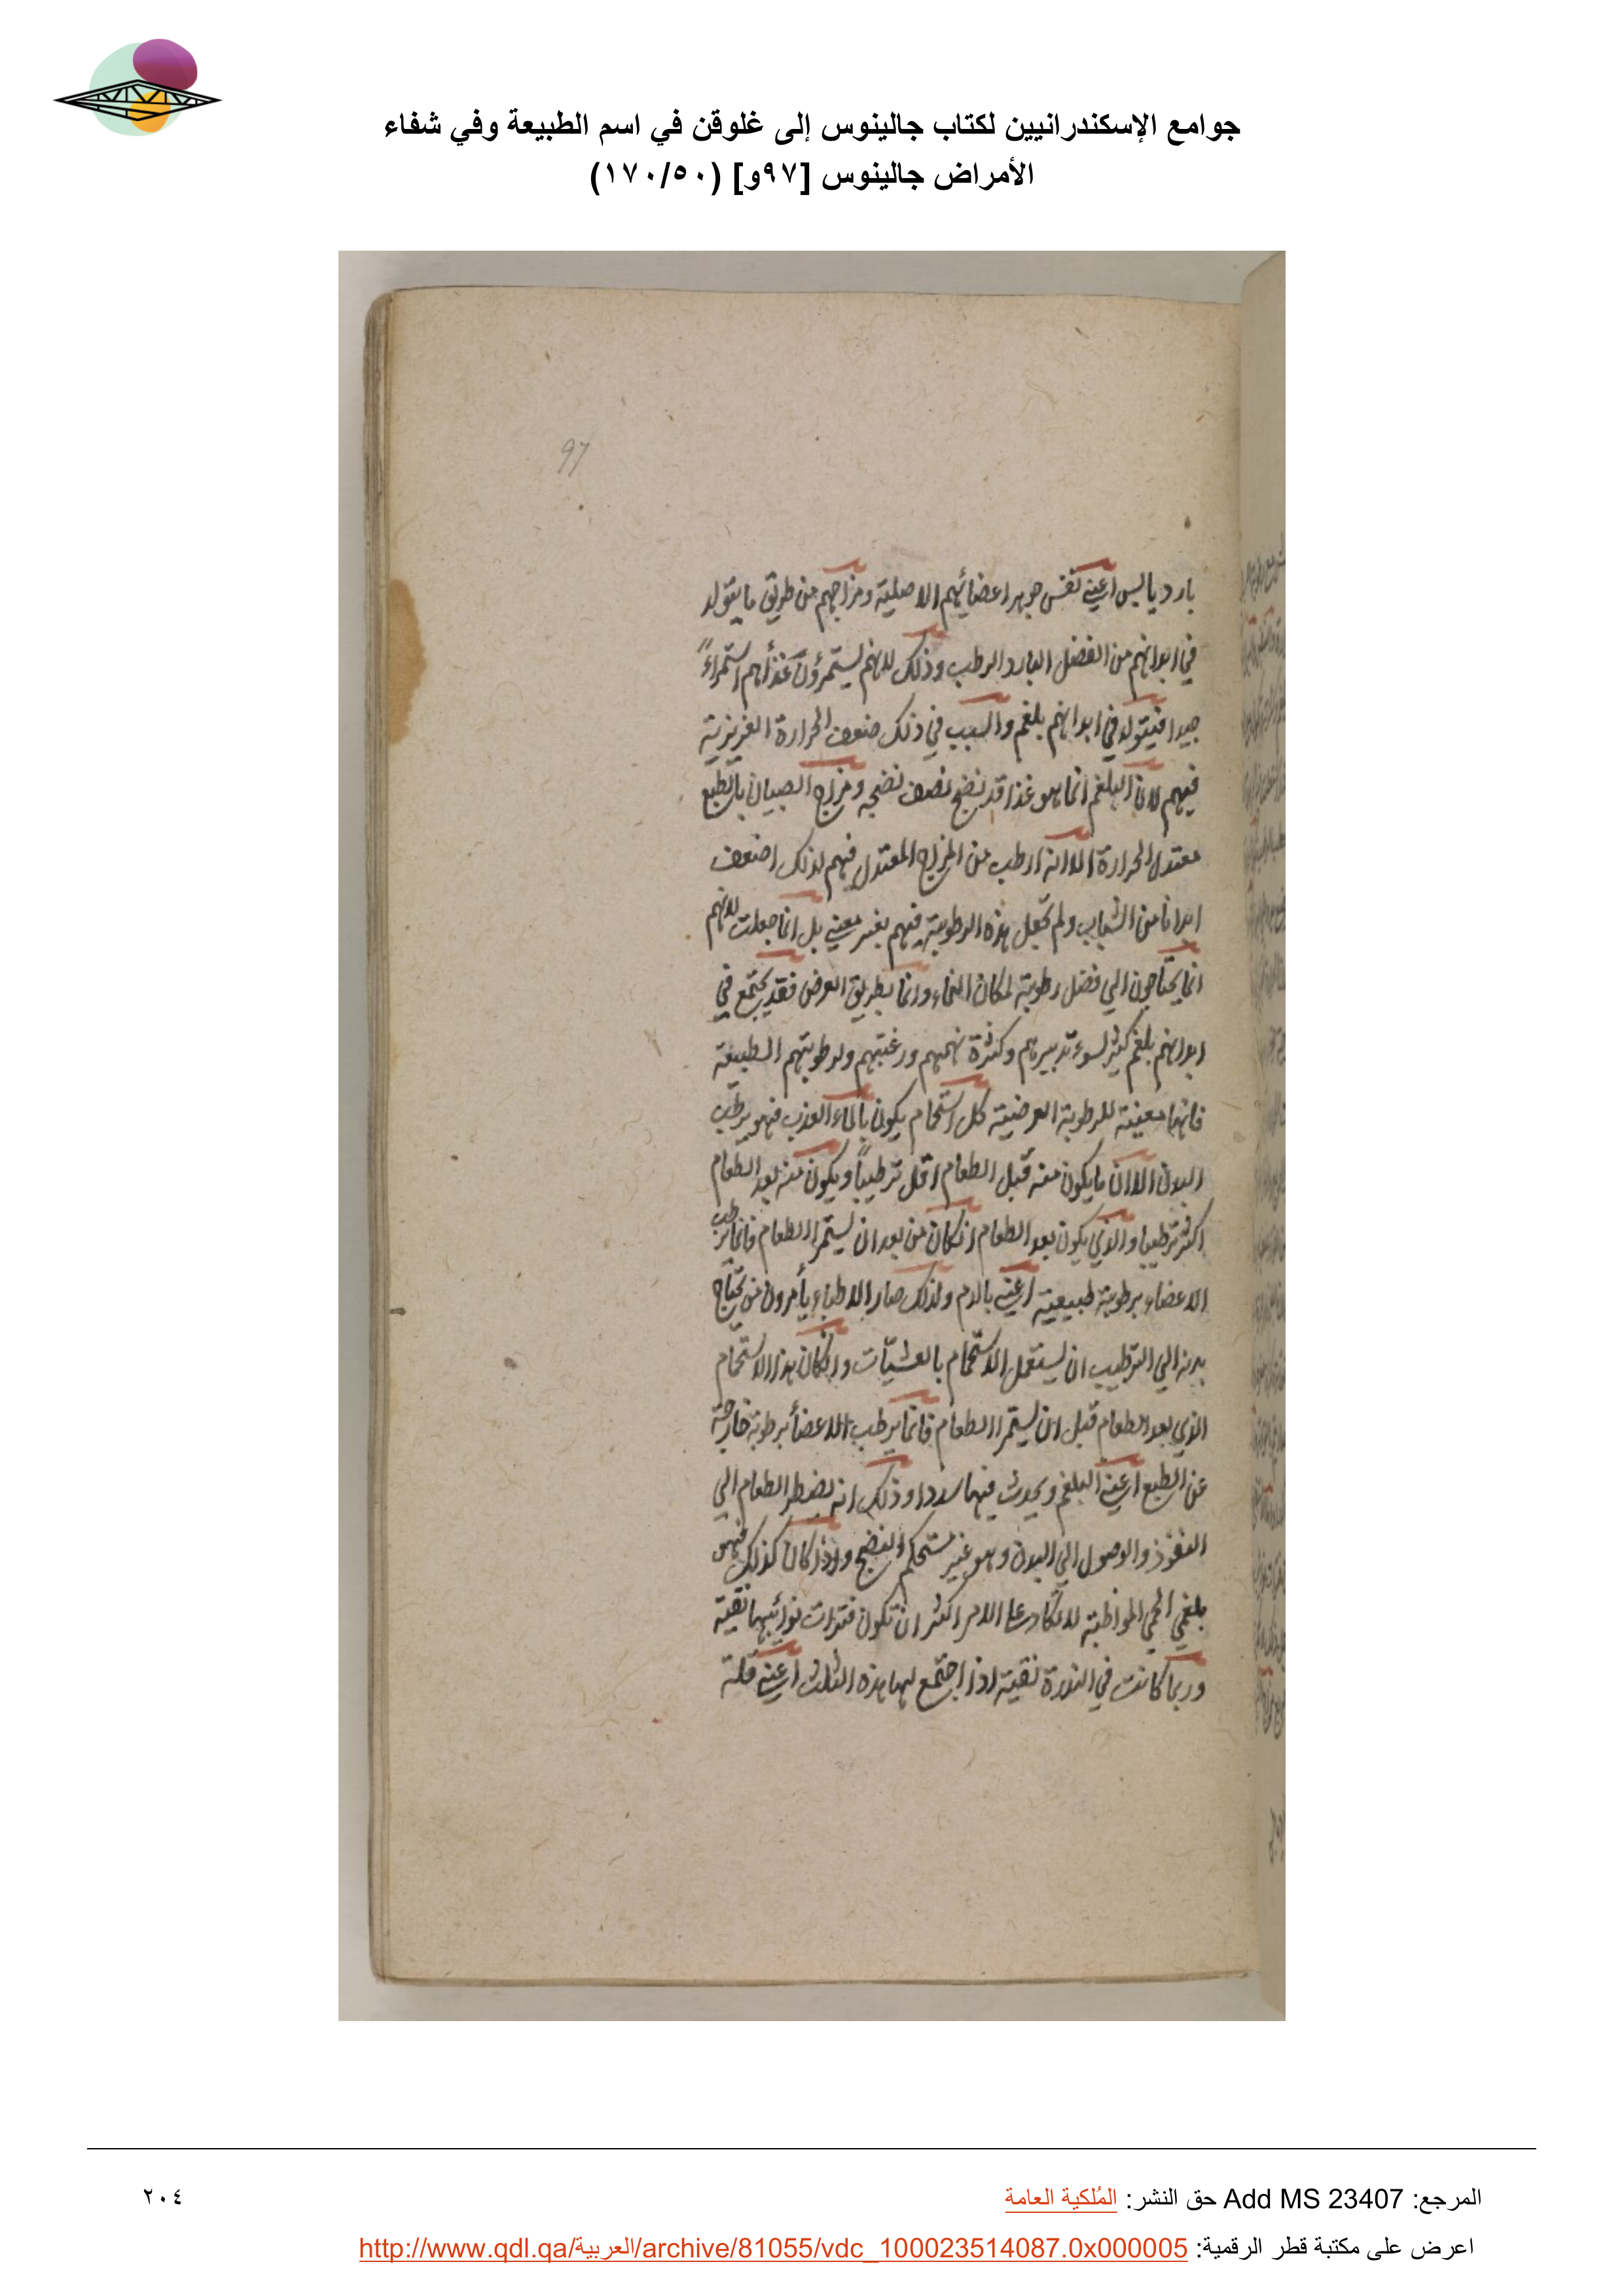 جوامع الإسكندرانيين لكتاب جالينوس إلى غلوقن في اسم الطبيعة وفي شفاء
الأمراض جالينوس [٩٧و] (١٧٠/٥٠)
97
بارد يابس اعني نفس جوهر اعضائهم الاصلية ومزاجهم من طريق ما يتولد
في ابدانهم من الفضل البارد الرطب وذلك لانهم يستمرؤن غذأهم استمراءً
جيدا فيتولد في ابدانهم بلغم والسبب في ذلك ضعف الحرارة الغريزية
فيهم لان البلغم انما هو غذا قد نضج نصف نضجه ومزاج الصبيان بالطبع
معتدل الحرارة الا انه ارطب من المزاج المعتدل فهم لذلك اضعف
ابدانا من الشباب ولم تجعل هذه الرطوبة فيهم بغير معني بل انما جعلت لانهم
انما يحتاجون الي فضل رطوبة لمكان النماء وانما بطريق العرض فقد يجتمع في
ابدانهم بلغم كثير لسوء تدبيرهم وكثرة نهمهم ورغبتهم ولرطوبتهم الطبيعة
فانها معينة للرطوبة العرضية كل استحمام يكون بالماء العذب فهو يرطب
البدن الا ان ما يكون منه قبل الطعام اقل ترطيباً ويكون منه بعد الطعام
اكثر ترطيبا والذي يكون بعد الطعام ان كان من بعد ان يستمرا الطعام فانما يرطب
الاعضاء برطوبة طبيعية اعني بالدم ولذلك صار الاطباء يأمرون من يحتاج
بدنه الي الترطيب ان يستعمل الاستحمام بالعشيّات وان كان هذا الاستحمام
الذي بعد الطعام قبل ان يستمرا الطعام فانما يرطب الاعضأ برطوبة خارجة
عن الطبع اعني البلغم ويحدث فيها سددا وذلك انه يضطر الطعام الي
النفوذ والوصول الي البدن وهو غير مستحكم النضج واذا كان كذلك فهو
بلغمي الحمي المواظبة لا تكاد علي الامر اكثر ان تكون فترات نوائبها نقية
وربما كانت في الندرة نقية اذا اجتمع لها هذه الثلث اعني قلة
المرجع: Add MS 23407 حق النشر: المُلكية العامة
٢٠٤
اعرض على مكتبة قطر الرقمية: http://www.qdl.qa/العربية/archive/81055/vdc_100023514087.0x000005